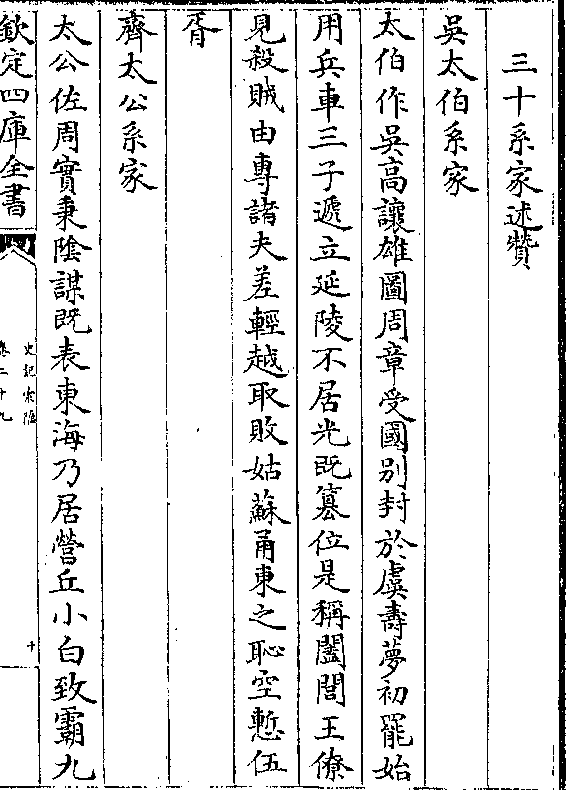 三十系家述贊
吳太伯系家
太伯作吳高讓雄圖周章受國别封於虞壽夢初罷始
用兵車三子遞立延陵不居光既簒位是稱闔閭王僚
見殺賊由專諸夫差輕越取敗姑蘇甬東之恥空慙伍
胥
齊太公系家
太公佐周實秉陰謀既表東海乃居營丘小白致霸九
欽定四庫全書
史記索隱
卷二十九
十